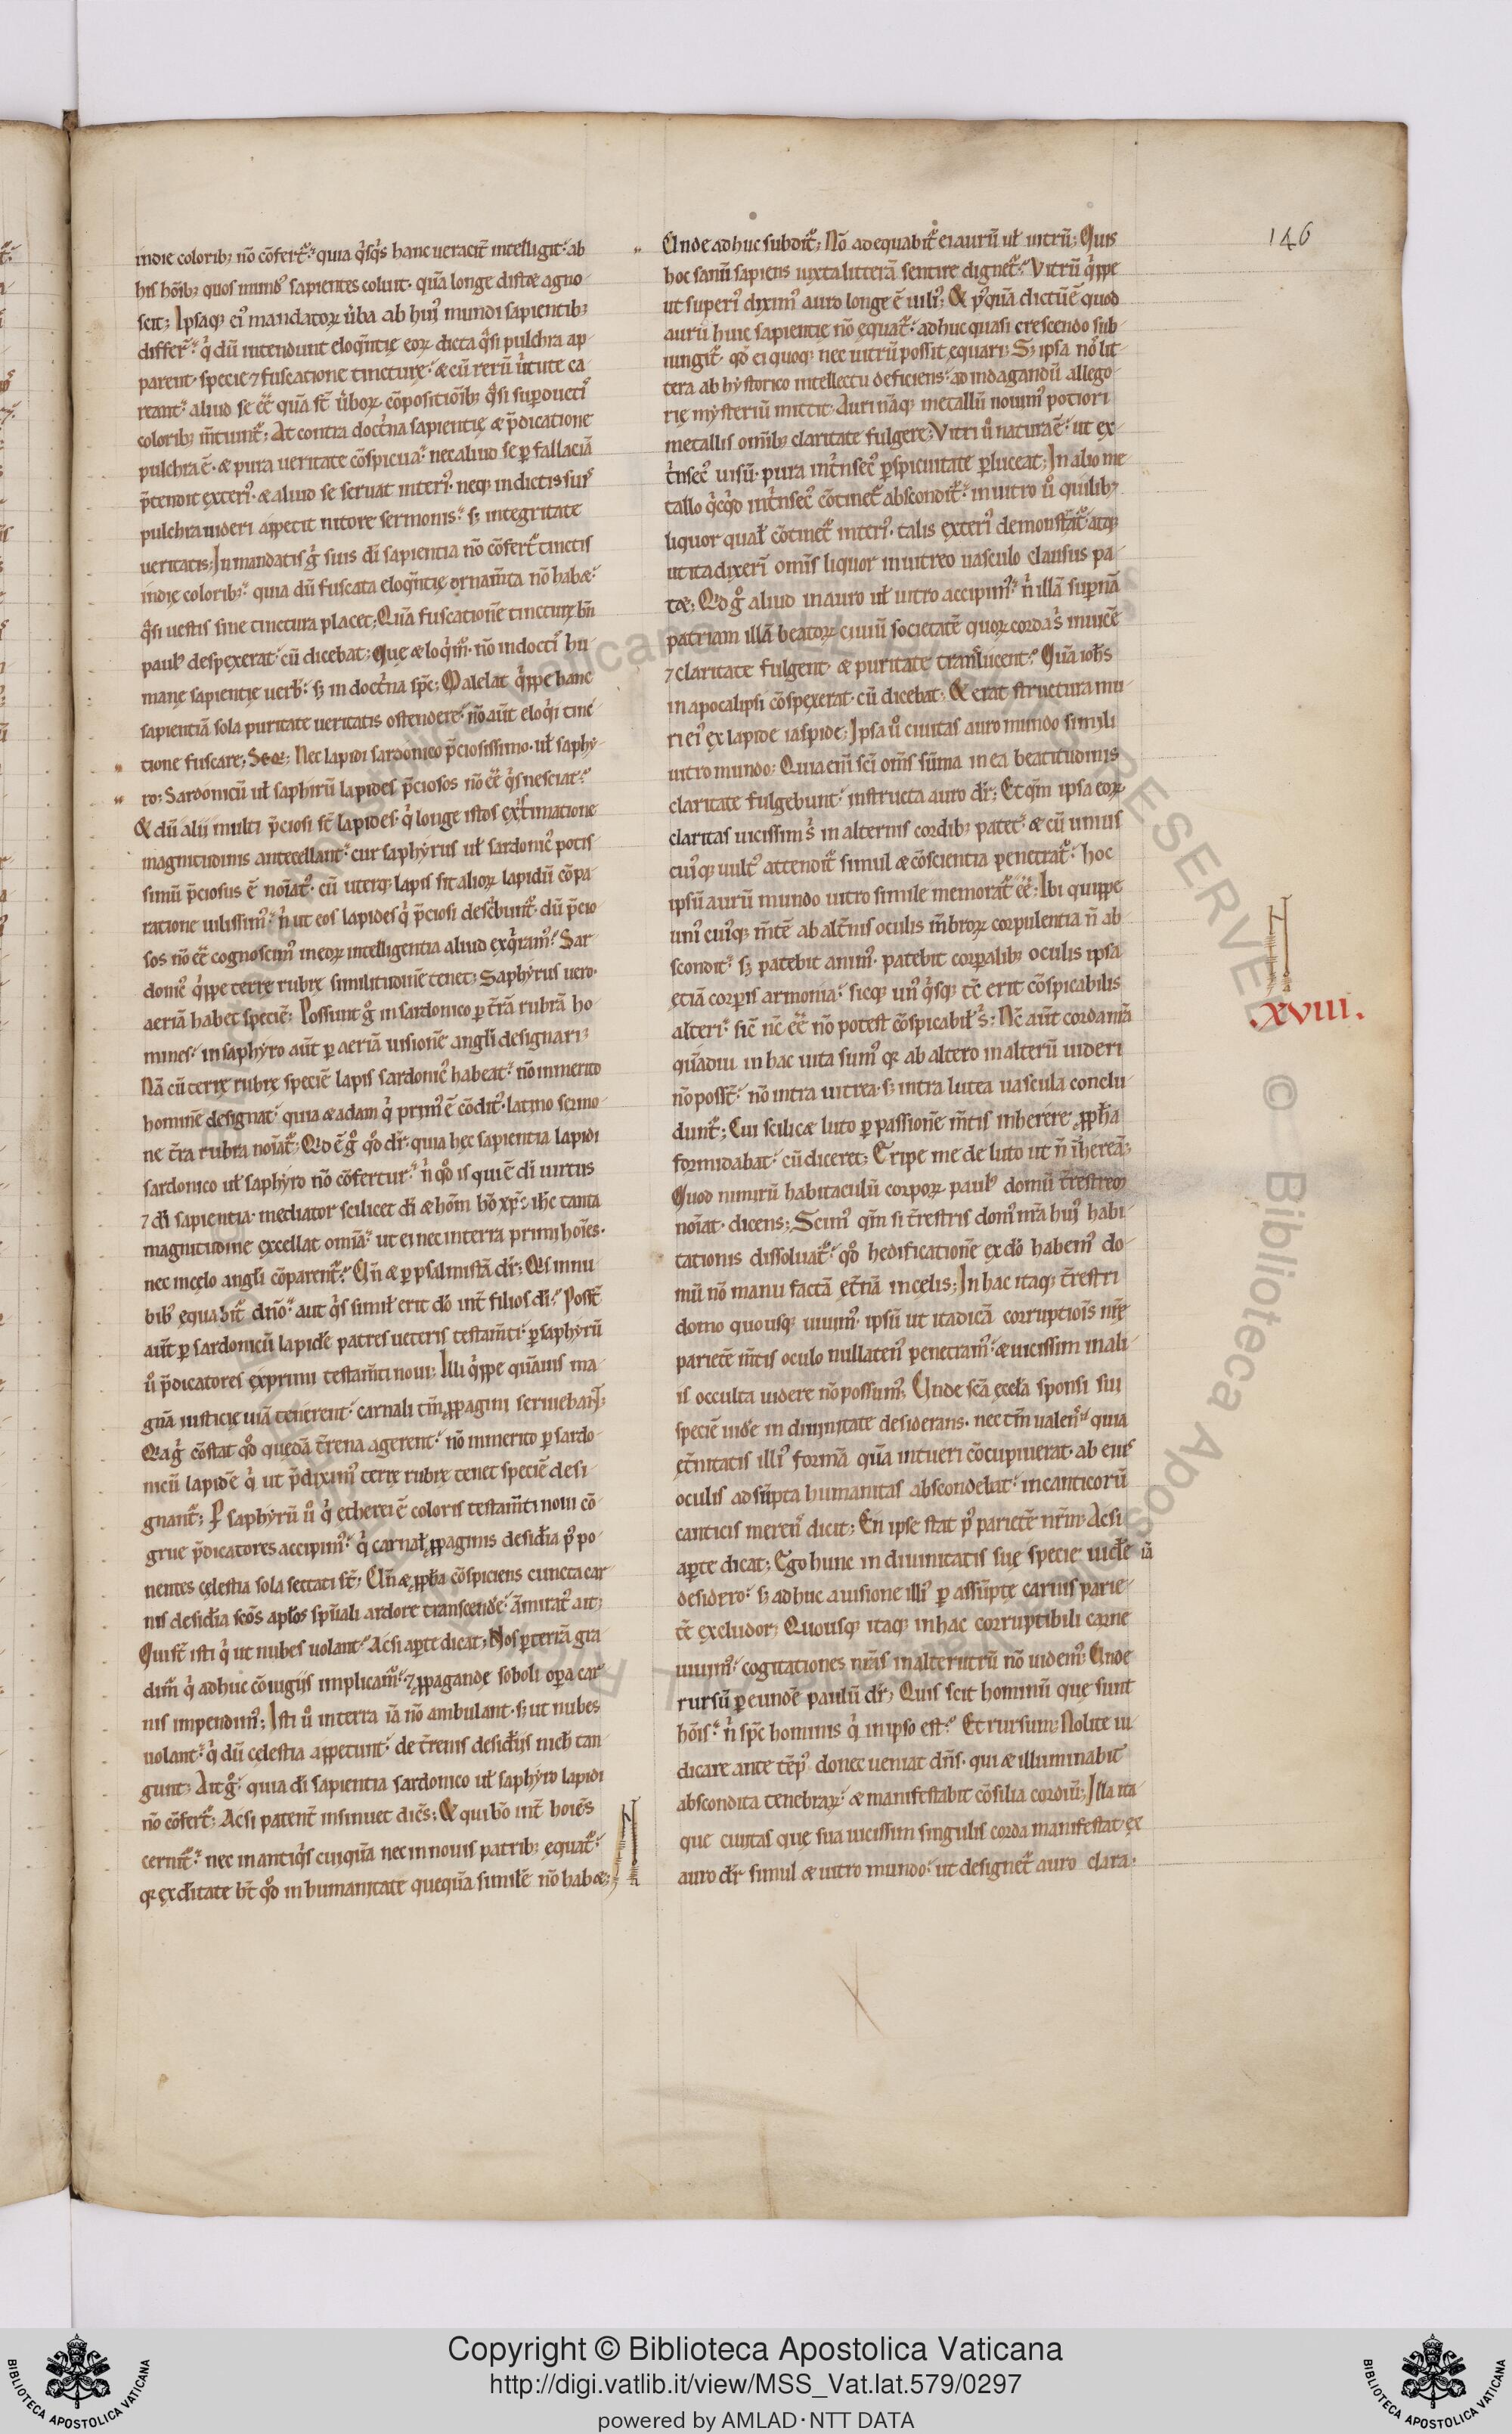 146
indie coloribꝫ nõ cõfert᷑. quia q̇sq̇s hanc ueracit̃ intelligit. ab
his hõibꝫ quos mund᷒ sapientes coluit. quã longe distæ agno-
scit; Ipsaqꝫ ei᷒ mandatoꝝ ũba ab hui᷒ mundi sapientibꝫ
differt᷑. q̇ dũ intendunt eloq̃ntię eoꝝ dicta q̃si pulchra ap-
parent. specie ⁊ fuscatione tincturę. æ cũ rerũ ũtute ca
reant. aliud se ẽẽ quã st̃ ũboꝝ cõpositiõibꝫ q̃si suꝑducti᷒
coloribꝫ m̃tiunt᷑; At contra doct̃na sapientię æ p̃dicatione
pulchra ẽ. æ pura ueritate cõspicua. nec aliud se ꝑ fallaciã
p̃tendit exteri᷒. æ aliud se seruat interi᷒. neqꝫ in dictis suis
pulchra uideri appetit nitore sermonis. sꝫ integritate
ueritatis; In mandatis g̃ suis dĩ sapientia nõ cõfert᷑ tinctis
indię coloribꝫ. quia dũ fuscata eloq̃ntię ornam̃ta nõ habæ.
q̃si uestis sine tinctura placet; Quã fuscationẽ tincturę bñ
paul᷒ despexerat. cũ dicebat; Quę æ loq̇m᷒. nõ in docti᷒ hu-
manę sapientię uerb̃. sꝫ in doct̃na sp̃c; Malelat q̇ppe hanc
sapientiã sola puritate ueritatis ostendere. nõ aũt eloq̇i tinc-
tione fuscare; Seq̃; Nec lapidi sardonico p̃ciosissimo. ul̃ saphy-
ro; Sardonicũ ul̃ saphirũ lapides p̃ciosos nõ ẽẽ q̇s nesciat.
& dũ alii multi p̃ciosi st̃ lapides. q̇ longe istos ext̃imatione
magnitudinis antecellant. cur saphyrus ul̃ sardonic᷒ potis
simũ p̃ciosus ẽ noĩat᷒. cũ uterqꝫ lapis sit alioꝝ lapidũ cõpa-
ratione uilissim᷒. ñ ut eos lapides q̇ p̃ciosi desc̃bunt᷑. dũ p̃cio-
sos nõ ẽẽ cognoscim᷒ in eoꝝ intelligentia aliud exq̇ram᷒. Sar-
donic᷒ q̇ppe terrę rubrę similitudinẽ tenet; Saphyrus uero.
aeriã habet speciẽ; Possunt g̊ in sardonico ꝑ t̃rã rubrã ho-
mines. in saphyro aũt ꝑ aeriã uisionẽ angl̃i designari;
Nã cũ terrę rubrę speciẽ lapis sardonic᷒ habeat. nõ inmerito
hominẽ designat. quia æ adam q̇ prim᷒ ẽ cõdit᷒. latino sermo-
ne t̃ra rubra noĩat᷑; Qd ẽ g̊ qd̊ dr̃. quia hęc sapientia lapidi
sardonico ul̃ saphyro nõ cõfertur. ñ qd̊ is qui ẽ dĩ uirtus
⁊ dĩ sapientia. mediator scilicet dĩ æ hõm hõ xp̃c ih̃c tanta
magnitudine excellat omĩa. ut ei nec in terra primi hoĩes.
nec in cęlo angl̃i cõparent᷑. Uñ æ ꝑ psalmistã dr̃; Qs in nu-
bib᷒ equabit᷑ dñõ. aut q̇s simil̃ erit dõ int̃ filios dĩ. Posst̃
aũt ꝑ sardonicũ lapidẽ patres ueteris testam̃ti. ꝑ saphyrũ
u̇ p̃dicatores exprimi testam̃ti noui; Illi q̇ppe quãuis ma-
gnã iusticię uiã tenerent. carnali tm̃ ꝓpagini seruiebant;
Qa g̃ cõstat qd̊ quedã t̃rena agerent. nõ inmerito ꝑ sardo-
nicũ lapidẽ q̇ ut p̃dixim᷒ terrę rubrę tenet speciẽ desi-
gnant᷑; ꝑ saphyrũ u̇ q̇ ętherei ẽ coloris testam̃ti noui cõ-
grue p̃dicatores accipim᷒. q̇ carnal̃ ꝓpaginis desid̃ia p᷒ po-
nentes cęlestia sola sectati st̃; Uñ æ ꝓph̃a cõspiciens cuncta car
nis desid̃ia scõs apl̃os spũali ardore transcendẽ. ãmirat᷒ ait;
Qui st̃ isti q̇ ut nubes uolant. Ac si apte dicat; Nos ꝑ terrã gra
dim̃ q̇ adhuc cõiugiis implicam᷒. ⁊ ꝓpagandę soboli oꝑa car-
nis impendim᷒; Isti u̇ in terra iã nõ ambulant. sꝫ ut nubes
uolant. q̇ dũ cęlestia appetunt. de t̃renis desid̃iis nich̃ tan-
gunt; Ait g̊. quia dĩ sapientia sardonico ul̃ saphyro lapidi
nõ cõfert᷑; Ac si patent̃ insinuet dicẽs; & qui hõ int̃ hoĩes
cernit᷑. nec in antiq̇s cuiquã nec in nouis patribꝫ equat᷑.
qꝛ ex d̃itate ht̃ qd̊ in humanitate quequã similẽ nõ habæ;
Unde adhuc subdit᷑; Nõ adequabit᷑ ei aurũ ul̃ uitrũ; Quis
hoc sanũ sapiens iuxta litterã sentire dignet᷑. Vitrũ q̇ppe
ut superi᷒ dixim᷒ auro longe ẽ uili᷒; & p᷒quã dictũ ẽ quod
aurũ huic sapientię nõ equat᷑. adhuc quasi crescendo sub-
iungit᷑. qd̊ ei quoqꝫ nec uitrũ possit equari; Sꝫ ipsa nõ lit-
tera ab hystorico intellectu deficiens. ad indagandũ allego-
rię mysteriũ mittit; Auri nãqꝫ metallũ nouim᷒ potiori
metallis omĩbꝫ claritate fulgere; Vitri u̇ natura ẽ. ut ex-
t̃nsec᷒ uisũ. pura int̃nsec᷒ ꝑspicuitate ꝑluceat; In alio me-
tallo q̇cq̇d int̃nsec᷒ cõtinet᷑ abscondit᷑. in uitro u̇ quilibꝫ
liquor qual̃ cõtinet᷑ interi᷒. talis exteri᷒ demonstrat᷑. atqꝫ
ut ita dixerĩ omĩs liquor in uitreo uasculo clausus pa-
tæ; Qd g̊ aliud in auro ul̃ uitro accipim᷒. ñ illã suꝑnã
patriam illã beatoꝝ ciuiũ societatẽ quoꝝ corda s̃ inuicẽ
⁊ claritate fulgent. æ puritate translucent. Quã ioh̃s
in apocalipsi cõspexerat. cũ dicebat; & erat structura mu-
ri ei᷒ ex lapide iaspide; Ipsa u̇ ciuitas auro mundo simili
uitro mundo; Quia eni᷒ scĩ om̃s sũma in ea beatitudinis
claritate fulgebunt. instructa auro dr̃; Et qm̃ ipsa eoꝝ
claritas uicissim s̃ in alternis cordibꝫ patet. æ cũ unius
cui᷒qꝫ uult᷒ attendit᷑ simul æ cõscientia penetrat᷑. hoc
ipsũ aurũ mundo uitro simile memorat᷑ ẽẽ; Ibi quippe
uni᷒ cui᷒qꝫ m̃tẽ ab alt̃ius oculis m̃broꝝ corpulentia ñ ab-
scondit. sꝫ patebit anim᷒. patebit corꝑalibꝫ oculis ipsa
ętiã corꝑis armonia. sicqꝫ un᷒ q̇sqꝫ tc̃ erit cõspicabilis
alteri. sic̃ nc̃ ẽẽ nõ potest cõspicabil̃ s̃; Nc̃ aũt corda nr̃a
XVIII.
quãdiu in hac uita sum᷒ qꝛ ab altero in alterũ uideri
nõ posst̃. nõ intra uitrea. sꝫ intra lutea uascula conclu-
dunt᷑; Cui scilicæ luto ꝑ passionẽ m̃tis inherere ꝓph̃a
formidabat. cũ diceret; Eripe me de luto ut ñ iñhereã;
Quod nimirũ habitaculũ corpoꝝ paul᷒ domũ t̃restreṁ
noĩat. dicens; Scim᷒ qm̃ si t̃restris dom᷒ nr̃a hui᷒ habi-
tationis dissoluat᷑. qd̊ hedificationẽ ex dõ habem᷒ do-
mũ nõ manu factã et̃nã in cęlis; In hac itaqꝫ t̃restri
domo quousqꝫ uiuim᷒. ipsũ ut ita dicã corruptiõis nr̃ę
parietẽ m̃tis oculo nullaten᷒ penetram᷒. æ uicissim in ali-
is occulta uidere nõ possum᷒; Unde scã ęccl̃a sponsi sui
speciẽ uidẽ in diuinitate desiderans. nec tm̃ ualens. quia
ęt̃nitatis illi᷒ formã quã intueri cõcupiuerat. ab eius
oculis adsũpta humanitas abscondebat. in canticorũ
canticis merens dicit; En ipse stat p᷒ parietẽ nr̃m; Ac si
apte dicat; Ego hunc in diuinitatis suę specie uidẽ iã
desidero. sꝫ adhuc a uisione illi᷒ ꝑ assũptę carnis parie-
tẽ excludor; Quousqꝫ itaqꝫ in hac corruptibili carne
uiuim᷒. cogitationes nr̃as in alterutrũ nõ uidem᷒; Unde
rursũ ꝑ eundẽ paulũ dr̃; Quis scit hominũ que sunt
hõis. ñ sp̃c hominis q̇ in ipso est. Et rursum; Nolite iu-
dicare ante tẽp᷒ donec ueniat dñs. qui æ illuminabit
abscondita tenebraꝝ. æ manifestabit cõsilia cordiũ; Illa ita-
que ciuitas quę sua uicissim singulis corda manifestat. ex
auro dr̃ simul æ uitro mundo. ut designet᷑ auro clara.